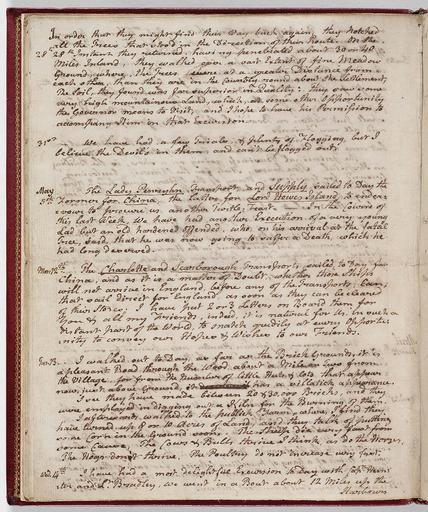 In order that they might find their Way back again, they Notched
all the Trees that stood in the Direction of their Route. On the
28th 28th Instant they returned, having penetrated about 30 or 40
Miles Inland, they walked over a vast Extent of fine Meadow
Ground, where the Trees were at a greater Distance from
each other, than they are in the Country round about the Settlement,
the Soil, they found was far superior in Quality: they saw some
very high mountainous Land, which, at some other Opportunity
the Governor means to Visit, and I hope to have his Permission to
accompany Him in that Excursion.
31st We have had a few Trials, & plenty of Flogging, but I
believe the Devil's in them, and can't be flogged out.
May
5th The Lady Penrhyn Transport, and Supply sailed to Day the
former for China, the latter for Lord Howe's Island, to endea-
vour to procure us another Turtle Feast. In the Course of
this last Week, we have had another Execution of a very young
Lad but an old hardened Offender, who, on his arrival at the fatal
Tree, said that he was now going to suffer a Death, which he
had long deserved.
The Charlotte and Scarborough transports, sailed to Day for
China, and as it is a matter of Doubt, whether those Ships
will not arrive in England, before any of the Transports,
that sail direct for England, as soon as they can be cleared
of their Stores, I have put Letters on Board them for
You & all my Friends, indeed, it is natural for Us, in such a
distant part of the World, to snatch greedily at every Opportu-
nity to convey our Hopes & Wishes to our Friends.
I walked out to Day, as far as the Brick Grounds, it is
a pleasant Road through the Wood about a Mile or two from
the Village, for from the Number of little Huts & Cots that appear
now, just above Ground, it has a villatick appearance.
I see they have made between 20 & 30,000 Bricks, and they
were employed in digging out a Kiln for the Burning of them.
I afterwards walked to the publick Farm, where, I find they
have turned up 8 or 10 Acres of Land, and they talk of putting
some Corn in the Ground soon. The Sheep die very fast from
some Cause. The Cows & Bulls thrive I think as do the Horses.
The Hogs don't thrive. The Poultry do not increase very fast.
I have had a most delightful Excursion to Day with
and Lt Bradley, we went in a Boat about 12 Miles up the
Harbour